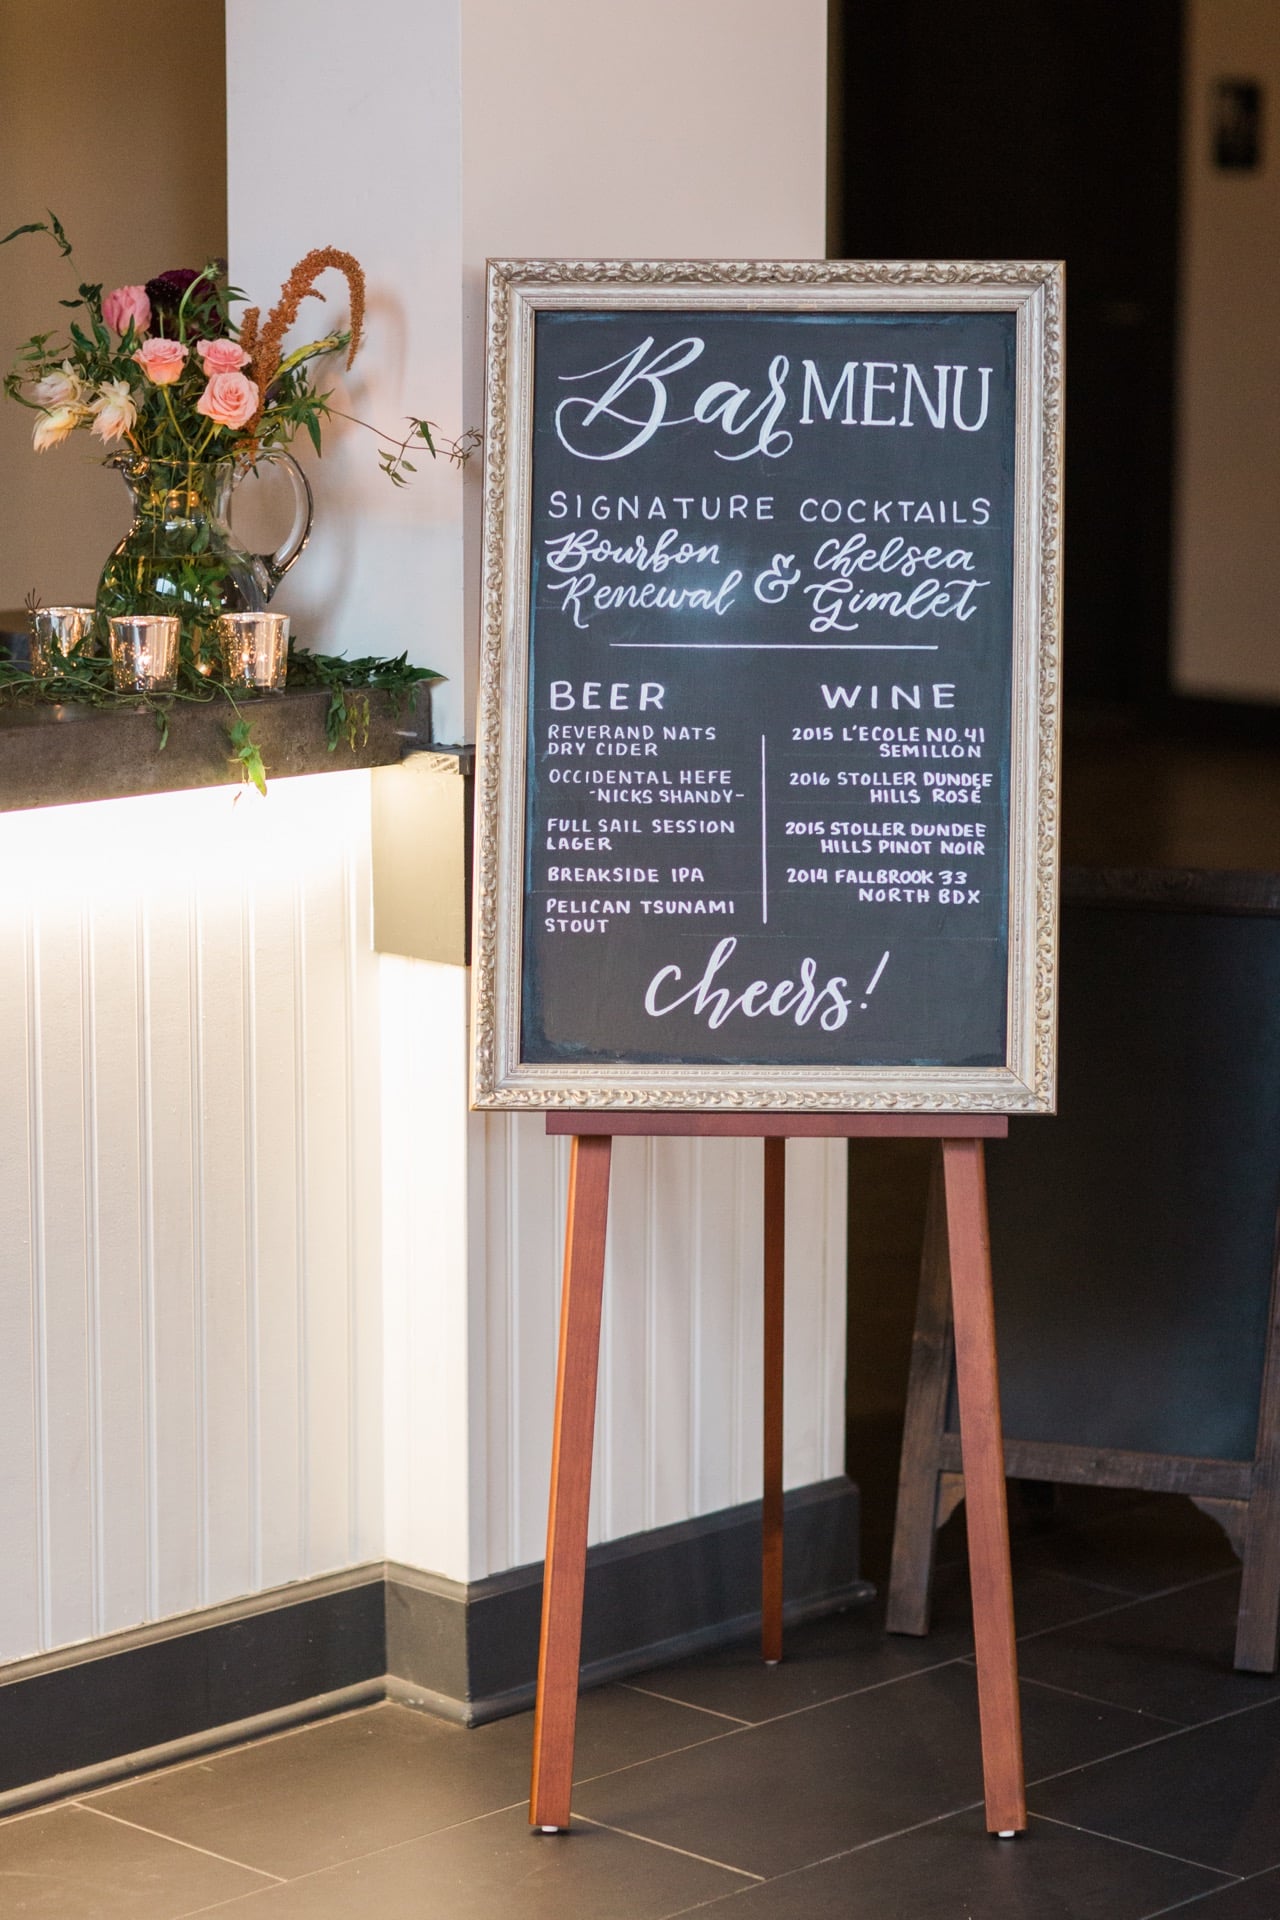 Bar MENU
SIGNATURE COCKTAILS
Bourbon Renewal & Chelsea Gimlet
BEER
REVERAND NATS
DRY CIDER
OCCIDENTAL HEFE
-NICKS SHANDY-
FULL SAIL SESSION
LAGER
BREAKSIDE IPA
PELICAN TSUNAMI
STOUT
WINE
2015 L'ECOLE NO. 41
SEMILLON
2016 STOLLER DUNDEE
HILLS ROSÉ
2015 STOLLER DUNDEE
HILLS PINOT NOIR
2014 FALLBROOK 33
NORTH BDX
Cheers!